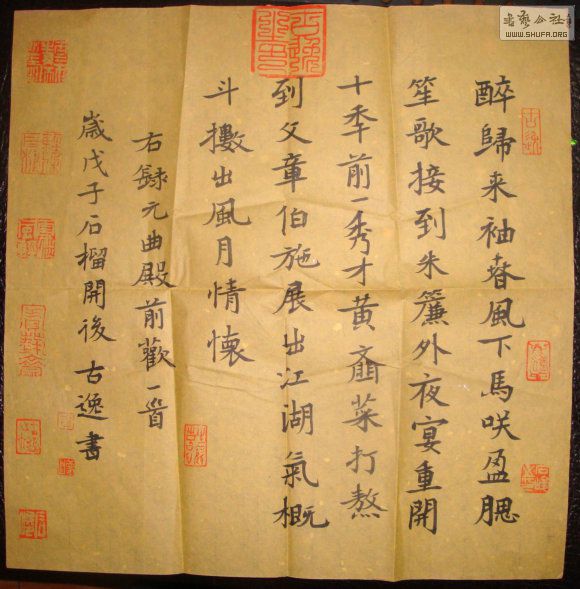 醉歸来袖春風下馬咲盈腮
笙歌接到朱簾外夜宴重開
十秊前一秀才黄齏菜打熬
到文章伯施展出江湖氣概
斗擻出風月情懷
右録元曲殿前歡一首
歲戊子石榴開後古逸書
书艺公社
WWW.SHUFA.ORG